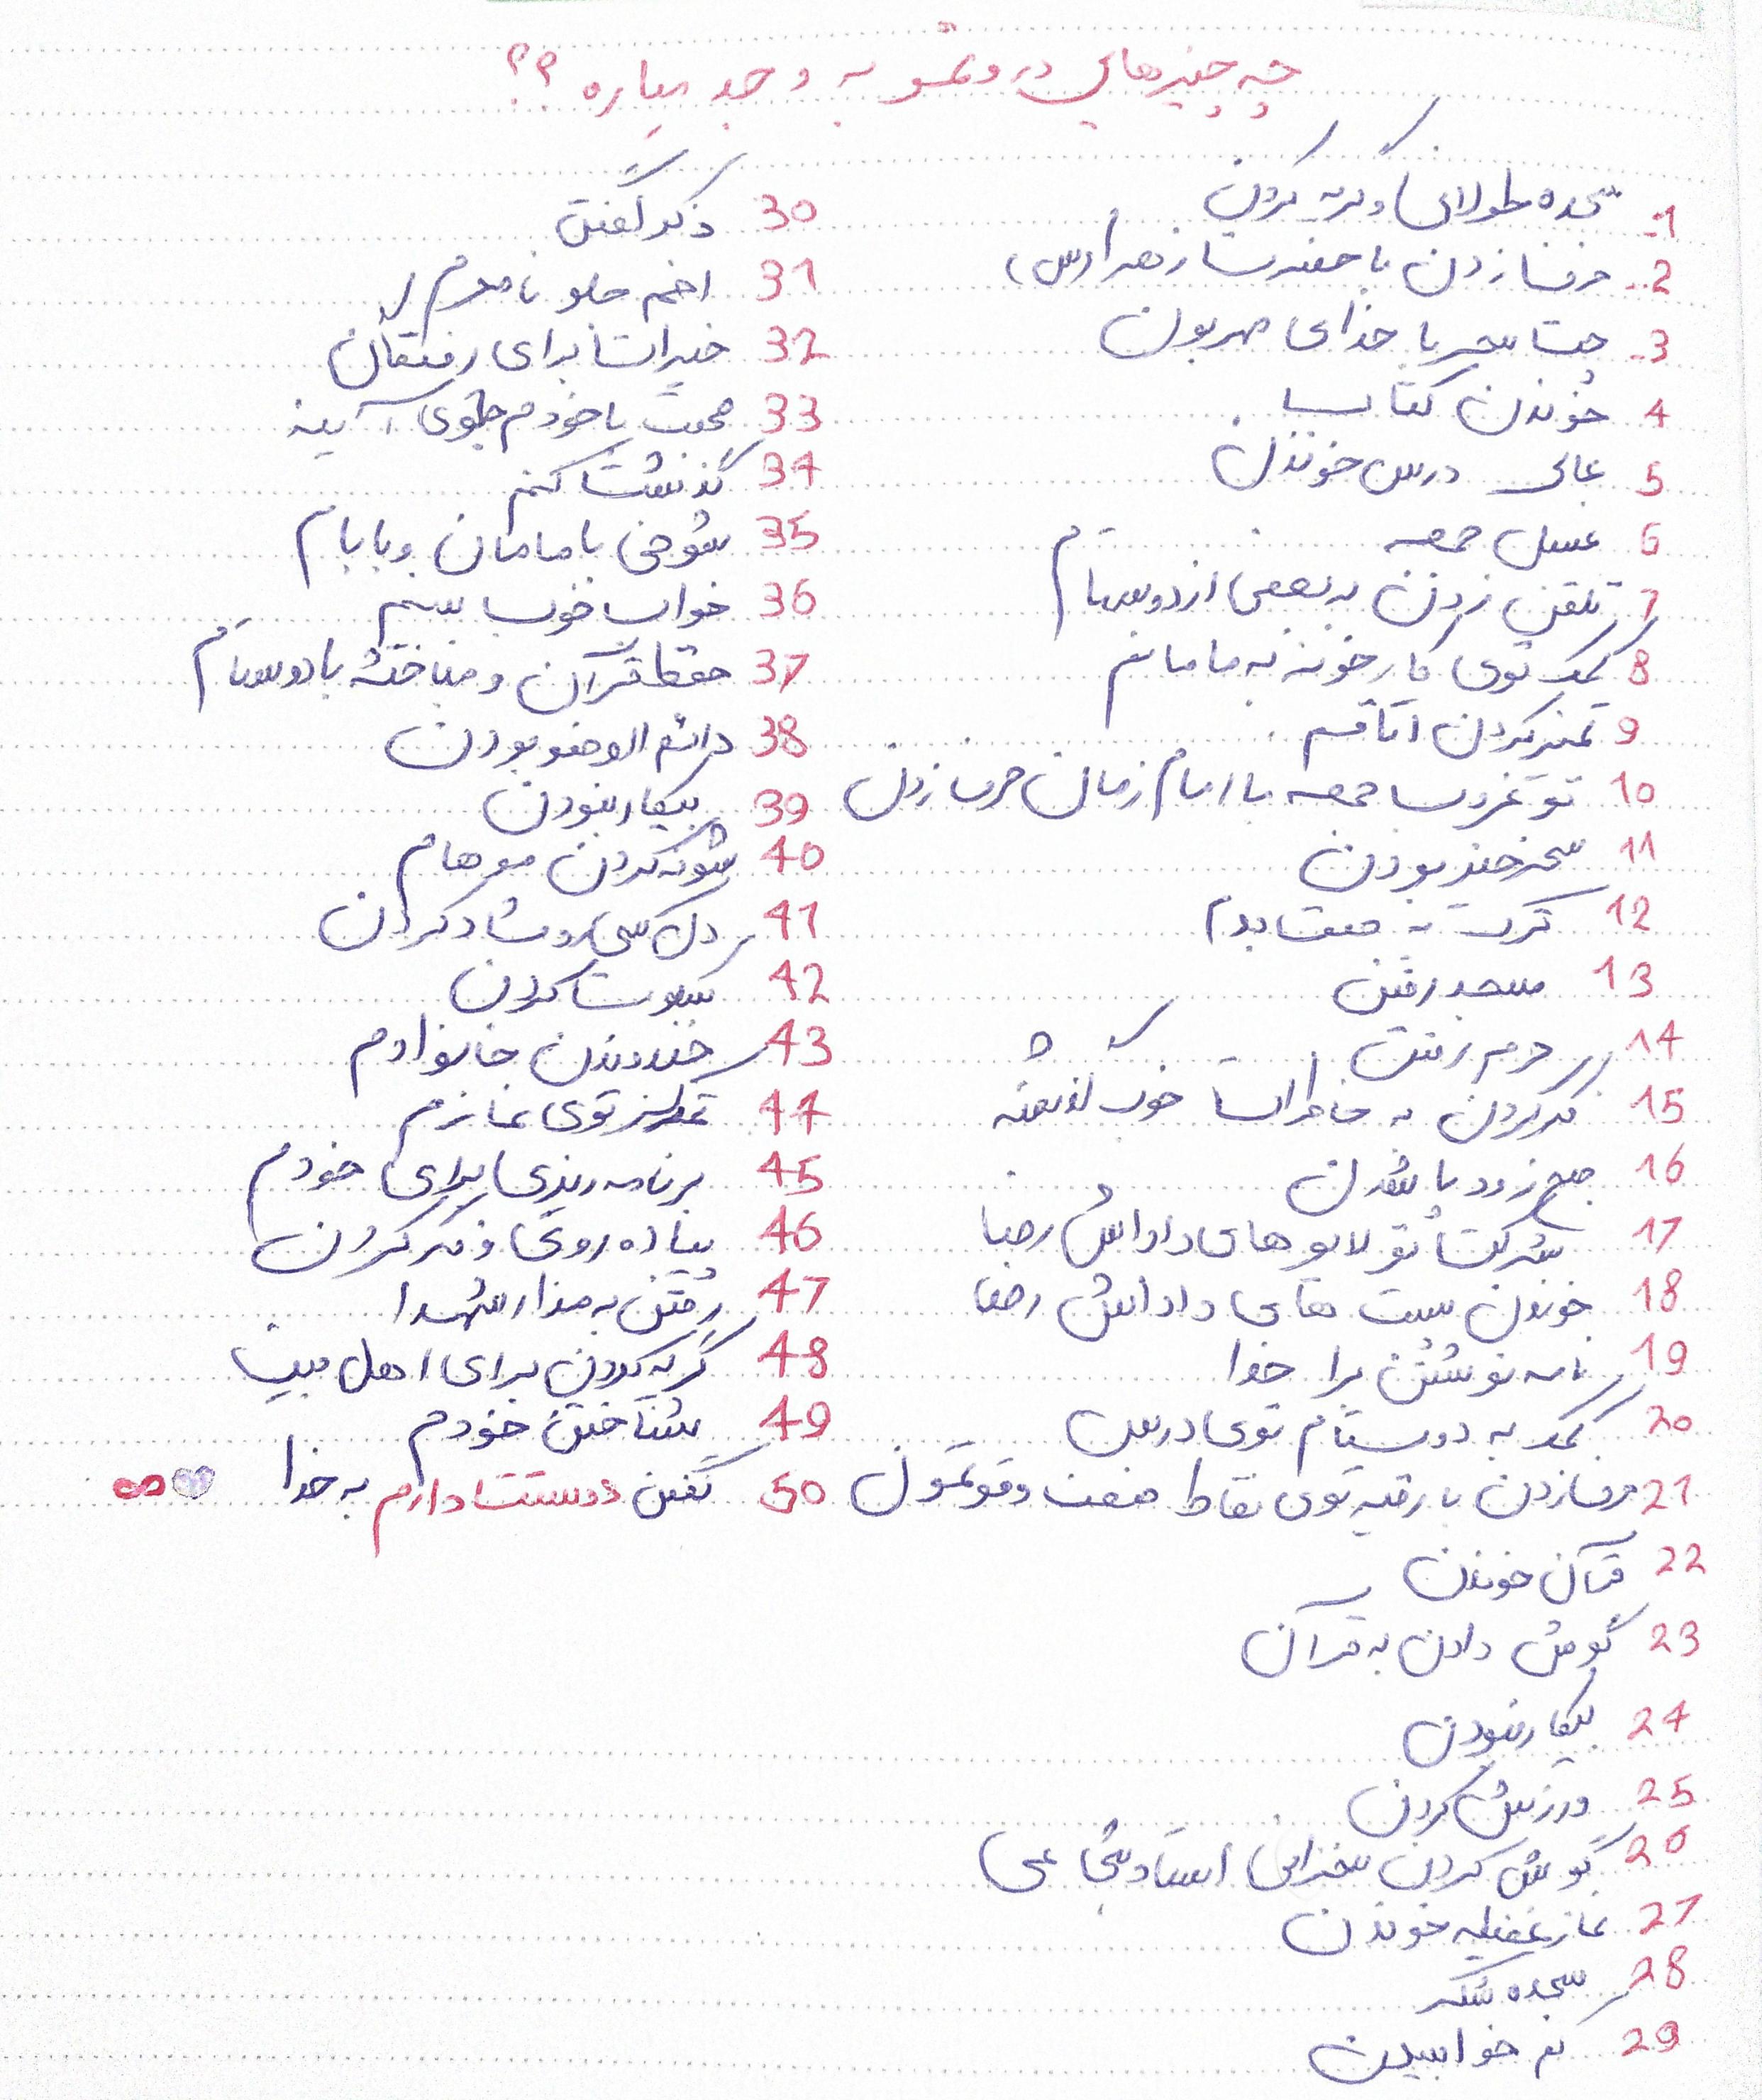 چه چیزهایی درونتو به وجد میاره ؟؟
1- سجده طولانی و گریه کردن
2- حرف زدن با حضرت زهرا (س)
3- چت سحر با خدای مهربون
4 خوندن کتاب
5 عالی درس خوندن
6 غسل جمعه
7 تلفن زدن به بعضی از دوستام
8 کمک توی کار خونه به مامانم
9 تمیز کردن اتاقم
10 تو غروب جمعه با امام زمان حرف زدن
11 سحرخیز بودن
12 ترک یه صفت بدم
13 مسجد رفتن
14 حرم رفتن
15 فکر کردن به خاطرات خوب گذشته
16 صبح زود پا شدن
17 شرکت تو لایو های داداش رضا
18 خوندن پست های داداش رضا
19 نامه نوشتن برا خدا
20 کمک به دوستام توی درس
21 حرف زدن با رقیه توی نقاط ضعف و قوتمون
22 قرآن خوندن
23 گوش دادن به قرآن
24 بیکار نبودن
25 ورزش کردن
26 گوش کردن سخنرانی استاد شجاعی
27 نماز غفیله خوندن
28 سجده شکر
29 کم خوابیدن
30 ذکر گفتن
31 اخم جلو نامحرم
32 خیرات برای رفتگان
33 صحبت با خودم جلوی آینه
34 گذشت کنم
35 شوخی با مامان و بابام
36 خواب خوب ببینم
37 حفظ قرآن و مباحثه با دوستام
38 دائم الوضو بودن
39 بیکار نبودن
40 شونه کردن موهام
41 دل کسی رو شاد کردن
42 سکوت کردن
43 خندوندن خانوادم
44 تمرکز توی نمازم
45 برنامه ریزی برای خودم
46 پیاده روی و فکر کردن
47 رفتن به مزار شهدا
48 گریه کردن برای اهل بیت
49 شناختن خودم
50 گفتن دوستت دارم به خدا